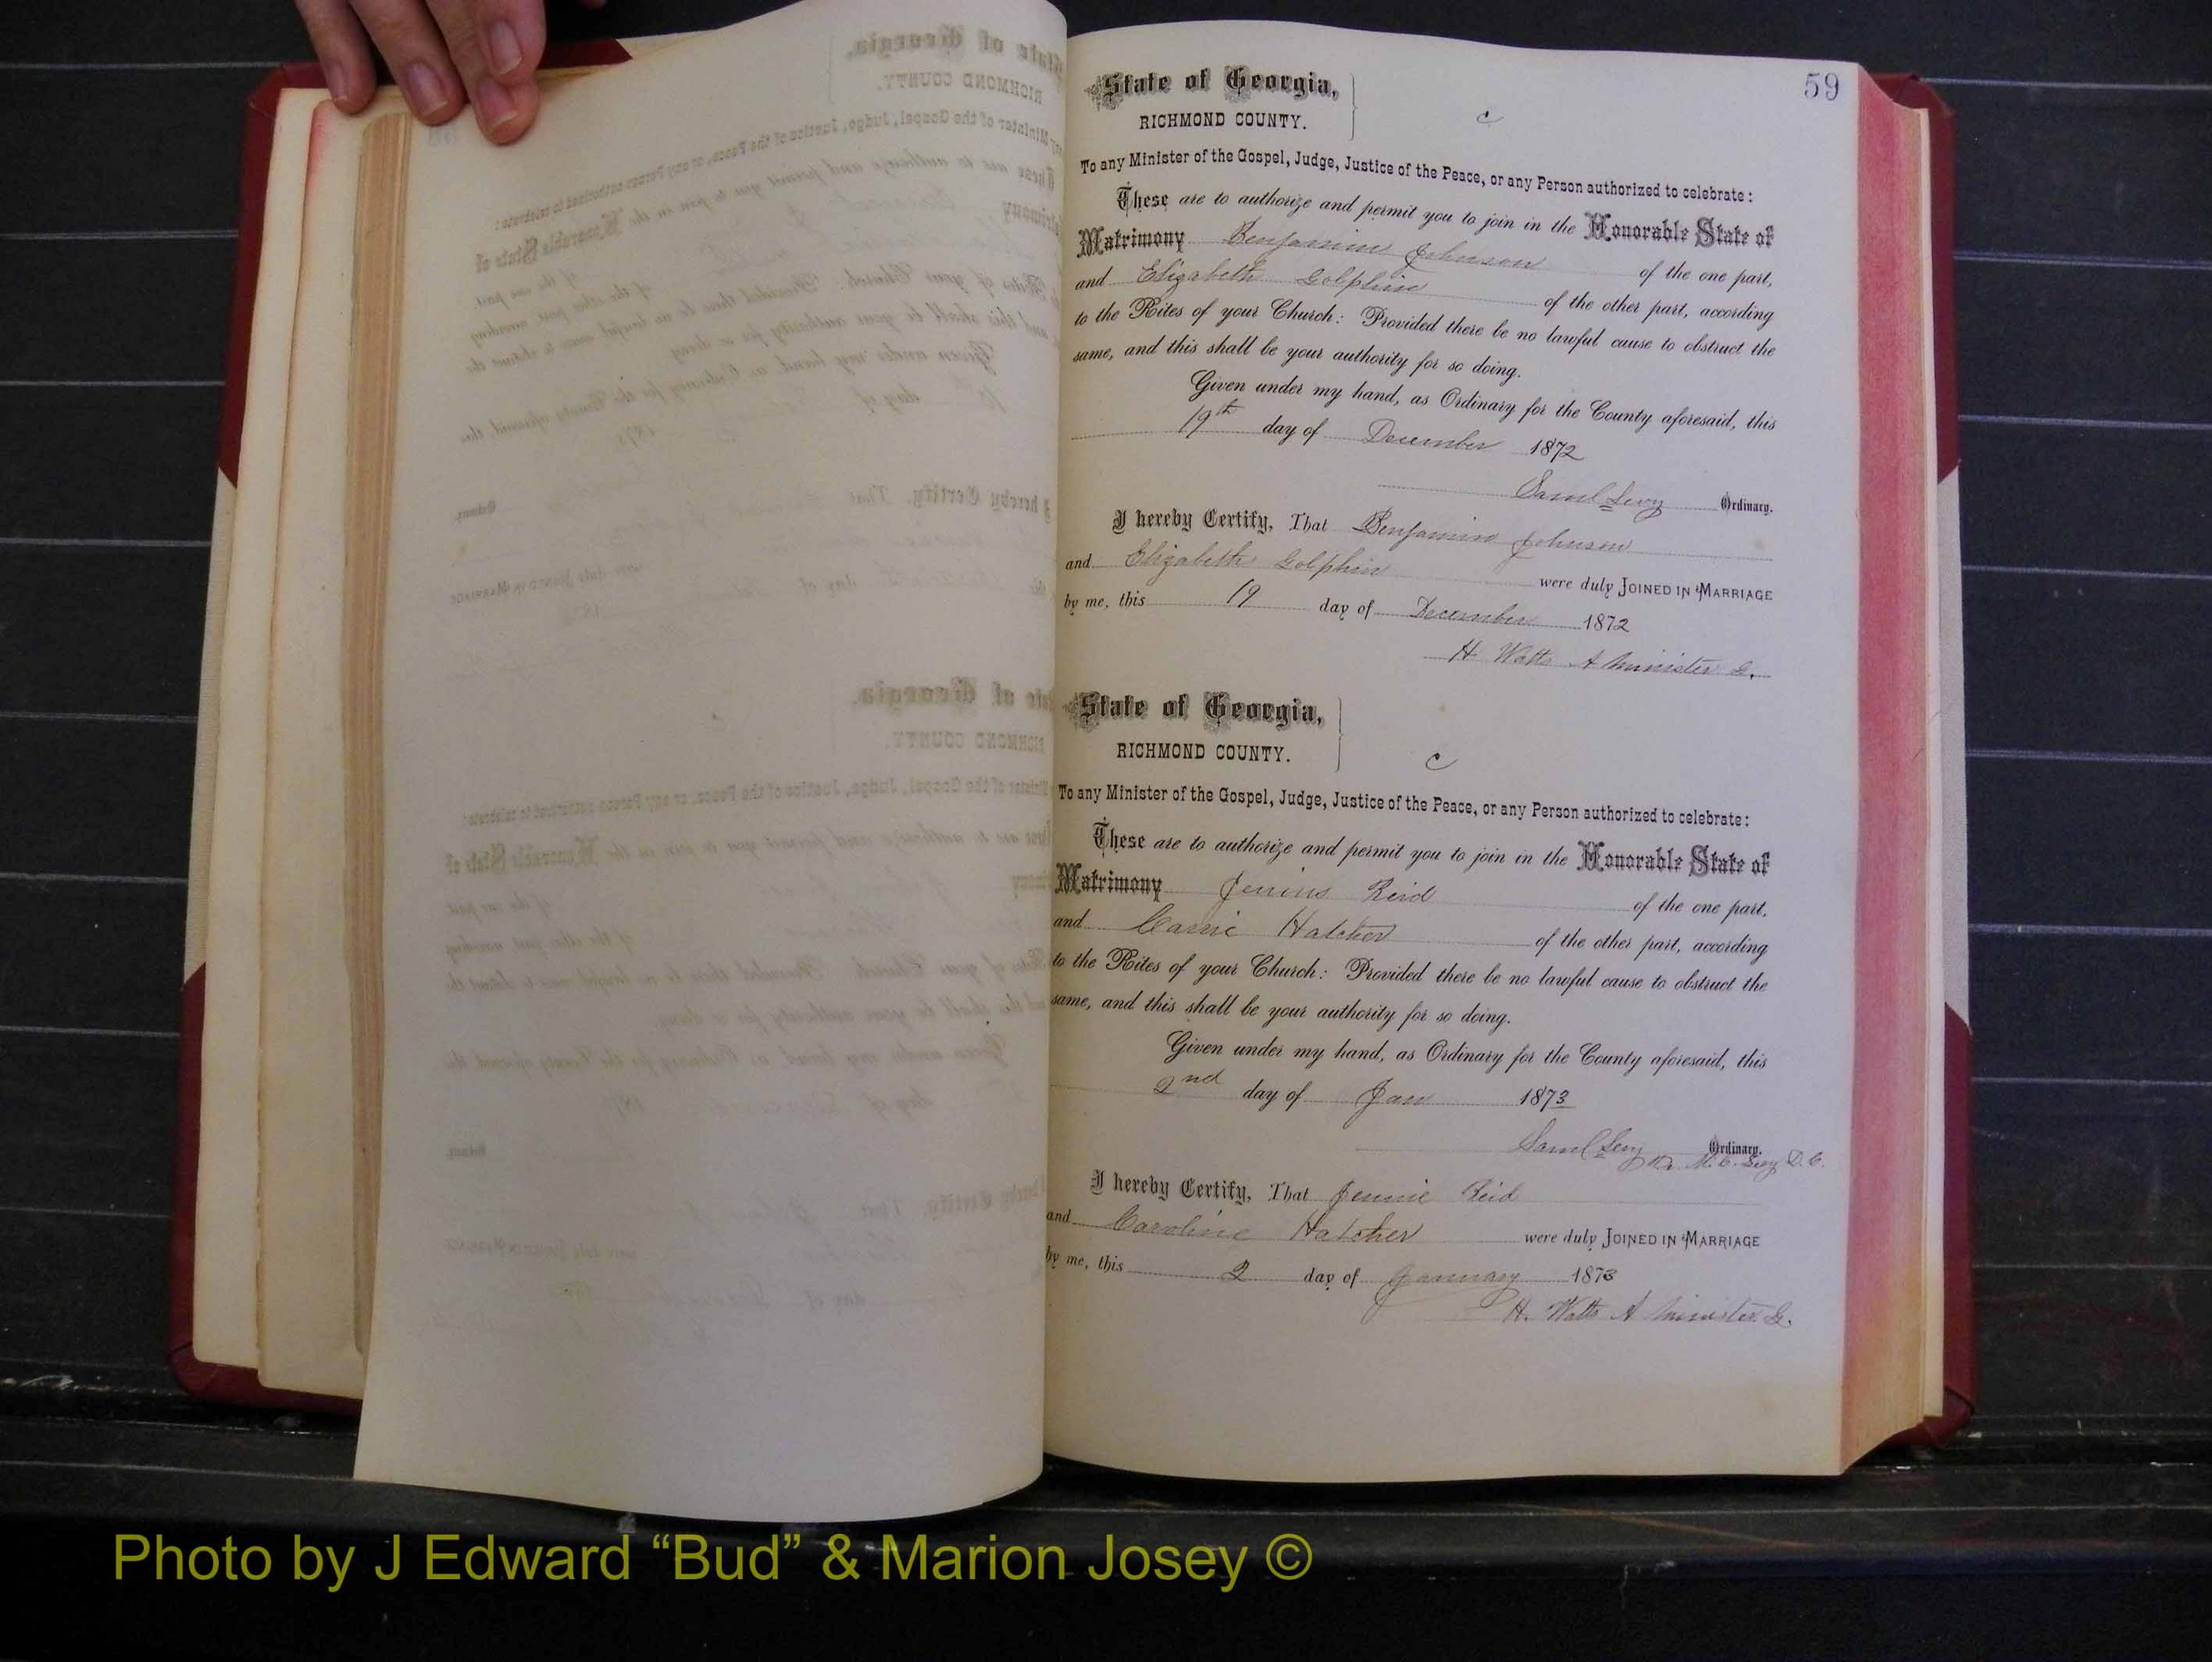 59
State of Georgia,
RICHMOND COUNTY.
c
To any Minister of the Gospel, Judge, Justice of the Peace, or any Person authorized to celebrate:
These are to authorize and permit you to join in the Honorable State of
Matrimony Benjamin Johnson of the one part,
and Elizabeth Golphin of the other part, according
to the Rites of your Church: Provided there be no lawful cause to obstruct the
same, and this shall be your authority for so doing.
Given under my hand, as Ordinary for the County aforesaid, this
19th day of December 1872
Saml Levy Ordinary.
I hereby Certify, That Benjamin Johnson
and Elizabeth Golphin were duly JOINED IN MARRIAGE
by me, this 19 day of December 1872
H Watts A Minister G.
State of Georgia,
RICHMOND COUNTY.
c
To any Minister of the Gospel, Judge, Justice of the Peace, or any Person authorized to celebrate:
These are to authorize and permit you to join in the Honorable State of
Matrimony Reid of the one part,
and Carrie Hatcher of the other part, according
to the Rites of your Church: Provided there be no lawful cause to obstruct the
same, and this shall be your authority for so doing.
Given under my hand, as Ordinary for the County aforesaid, this
2nd day of Jan 1873
Saml Levy Ordinary.
M. C. Levy D. C.
I hereby Certify, That Jennie Reid
and Caroline Hatcher were duly JOINED IN MARRIAGE
by me, this 2 day of January 1873
H. Watts A Minister G.
Photo by J Edward “Bud” & Marion Josey ©